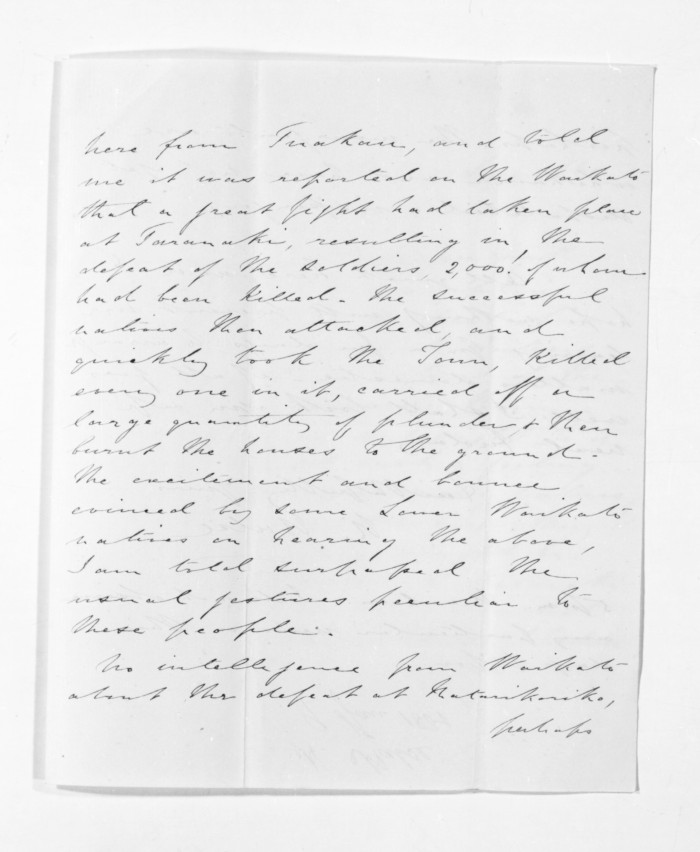 here from Tuakau, and told
me it was reported on the Waikato
that a great fight had taken place
at Taranaki, resulting in the
defeat of the soldiers, 2,000! of whom
had been killed. The successful
natives then attacked, and
quickly took the Town, killed
every one in it, carried off a
large quantity of plunder & then
burnt the houses to the ground.
The excitement and bounce
evinced by some Lower Waikato
natives on hearing the above,
I am told surpassed the
usual gestures peculiar to
these people.
No intelligence from Waikato
about the defeat at Matarikoriko,
perhaps